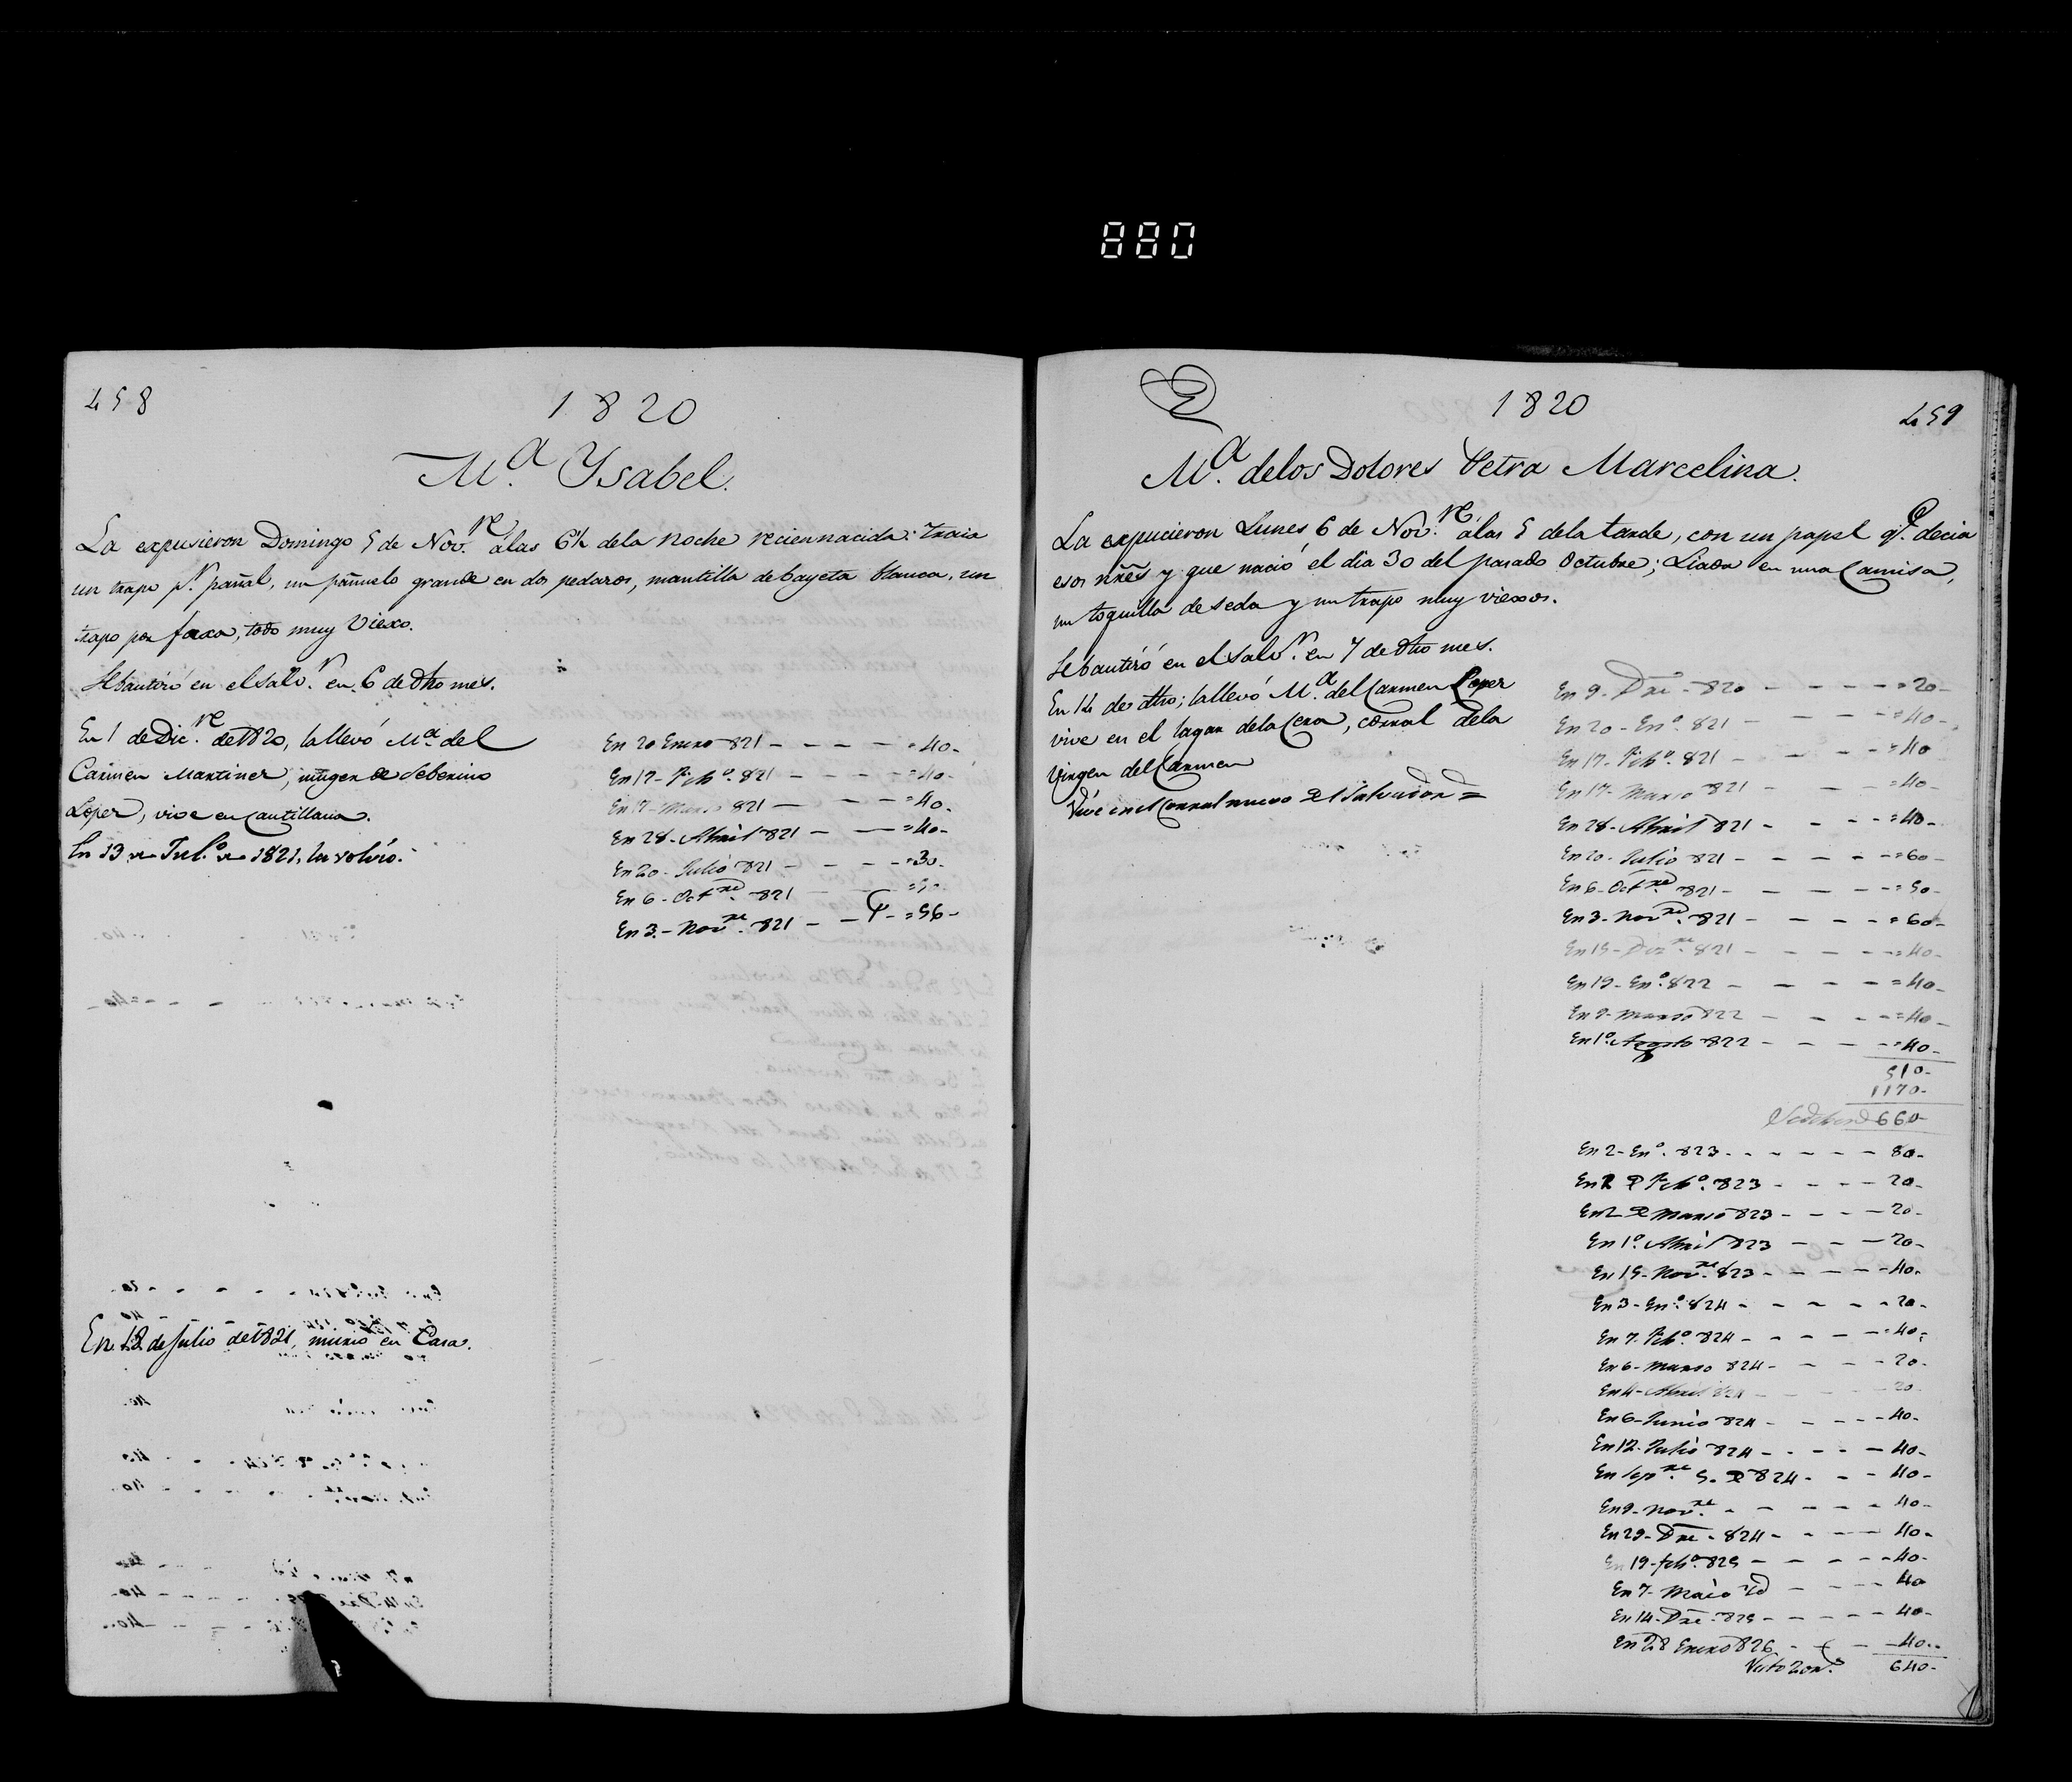 880
458
1820
M.ª Ysabel.
La expusieron Domingo 5 de Nov.re álas 6½ dela noche reciennacida: traia
un trapo p.r pañal, un pañuelo grande en dos pedazos, mantilla de bayeta blanca, un
trapo por faxa, todo muy Viexo.
Sebautizó en elsalv.r en 6 de dho mes.
En 1 deDic.re de1820, lallevó M.ª del
Carmen Martinez, muger de Seberino
Lopez, vive en Cantillana.
En 13 de Jul.o de 1821, la volvio.
En 20 Enero 821 - - - - = 40-
En 17- Feb.o 821 - - - - = 40-
En 17- Marzo 821 - - - = 40-
En 28- Abril 821 - - = 40-
En 20- Julio 821 - - - - = 30-
En 6- Oct.re 821 - - = 50-
En 3- Nov.re 821 - - = 56-
En 18 de Julio de1821, murio en Casa.
1820
459
M.ª delos Dolores Petra Marcelina.
La expucieron Lunes 6 de Nov.re álas 5 dela tarde, con un papel q.e decia
esos nñes y que nació el dia 30 del pasado Octubre; Liada en una Camisa,
un toquilla de seda y un trapo muy viexos.
Sebautizó en el Salv.r en 7 de dho mes.
En 14 de dho; lallevó M.ª del Carmen Lopez
vive en el lagar dela Cera, corral dela
Virgen del Carmen
Vive en el Corral nuevo del Salvador =
En 9- Dre - 820 - - - - = 20-
En 20- En.o 821 - - - - = 40-
En 17- Feb.o 821 - - - - = 40
En 17- Marzo 821 - - - = 40-
En 28- Abril 821 - - - = 40-
En 20- Julio 821 - - - - = 60-
En 6- Oct.re 821 - - - - = 50-
En 3- Nov.re 821 - - - - = 60-
En 15- Dre 821 - - - - = 40-
En 19- En.o 822 - - - - = 40-
En 9- Marzo 822 - - - - = 40-
En 1.o Agosto 822 - - - - = 40-
510-
1170-
Sedeben 660-
En 2- En.o 823 - - - - - - 80-
En 2 de Feb.o 823 - - - - 20-
En 2 de Marzo 823 - - - - 20-
En 1.o Abril 823 - - - 20-
En 15- Nov.re 823 - - - - - 40-
En 3- En.o 824 - - - - - 20-
En 7- Feb.o 824 - - - - - 40-
En 6- Marzo 824 - - - - 20-
En 4- Abril 824 - - - - 20-
En 6- Junio 824 - - - - 40-
En 12- Julio 824 - - - - 40-
En Sep.re 5- de 824 - - - 40-
En 9- Nov.re - - - - - 40-
En 29- Dre - 824 - - - - 40-
En 19- feb.o 825 - - - - 40-
En 7- Maio id - - - - 40
En 14- Dre - 825 - - - - - 40-
En 28 Enero 826 - - - 40-
640-